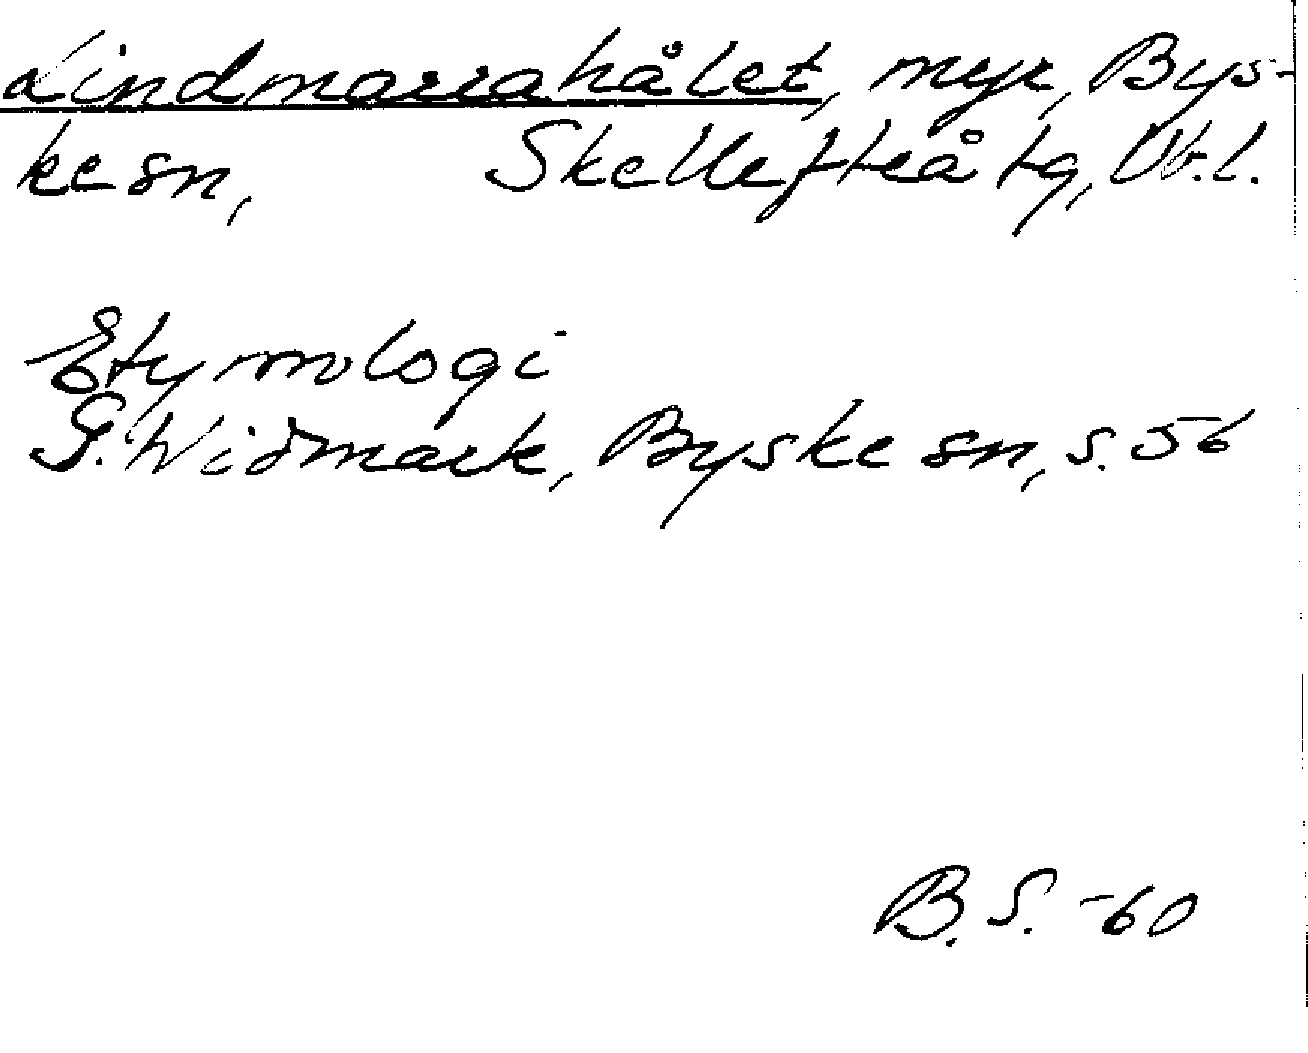 Lindmorrahålet, myr, Bys-
ke sn, Skellefteå tg, Vb.l.
Etymologi
G. Widmark, Byske sn, s. 56
B.S. -60